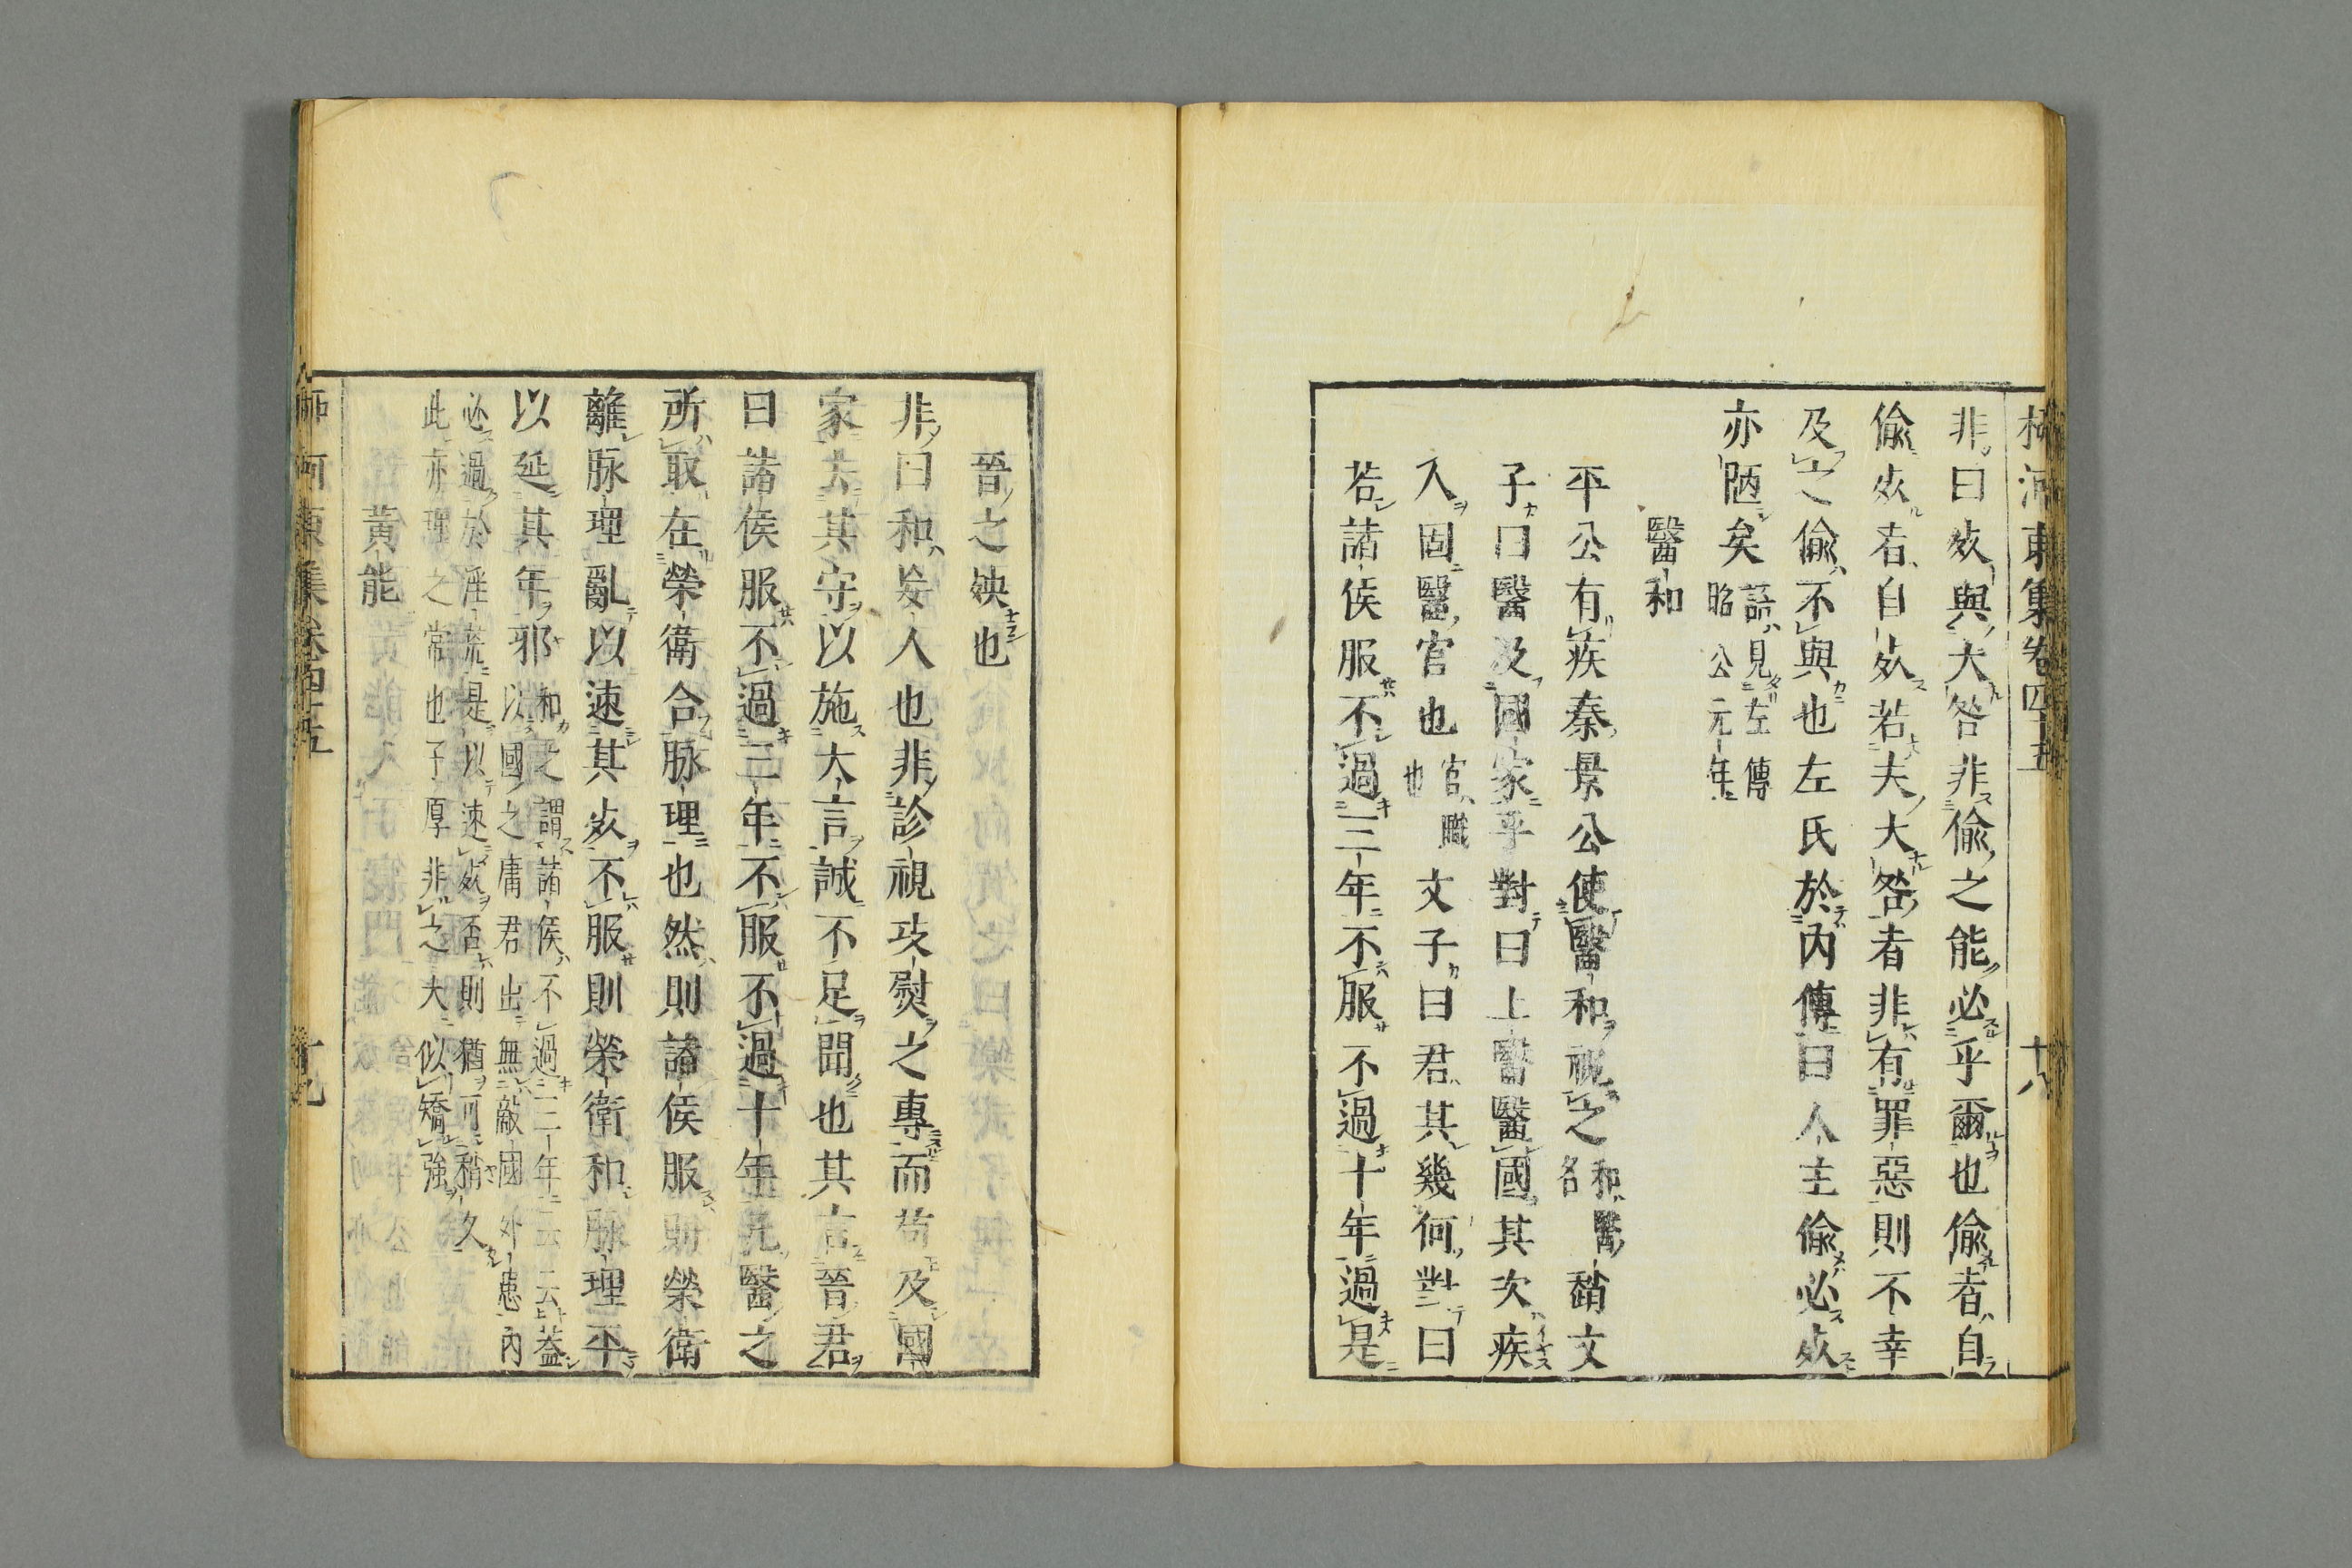 柳河東集卷四十五 十八
非曰死與大咎非偷之能必乎爾也偷者自
偷死者自死若夫大咎者非有罪惡則不幸
及之偷不與也左氏於內傳曰人主偷必死
亦陋矣語見左傳
昭公元年
醫和
平公有疾秦景公使醫和視之和醫
名
文
子曰醫及國家乎對曰上醫醫國其次疾
人固醫官也官職
也
文子曰君其幾何對曰
若諸侯服不過三年不服不過十年過是
晉之殃也
非曰和妄人也非診視攻熨之專而苟及國
家去其守以施大言誠不足聞也其言晉君
曰諸侯服不過三年不服不過十年凡醫之
所取在榮衛合脉理也然則諸侯服則榮衛
離脉理亂以速其死不服則榮衛和脉理平
以延其年邪和之謂諸侯不過三年云云蓋
以國之庸君出無敵國外患內
必過於淫荒是以速死否則猶可稍久
此亦理之常也子厚非之大似矯強
黃能
柳河東集卷四十五 十九